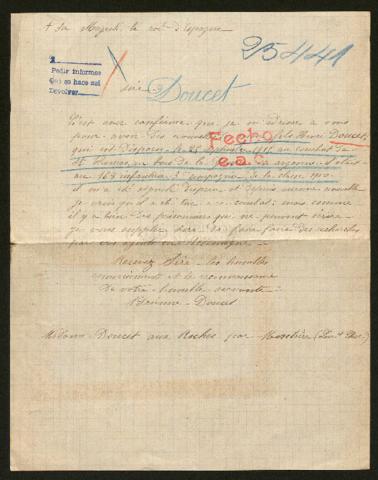 A Sa Majesté le roi d'Espagne
25441
Pedir informes
Que se hace asi
Devolver
Sire
Doucet
C'est avec confiance que je m'adresse a vous
pour avoir des nouvelles fils Henri Doucet
Fecho
qui est disparu le 25 septembre 1915 au combat de
St Thomas au bois de la argonne il était
e.a.c.
au 163 infanterie 3e compagnie de la classe
il m'a été signalé disparu et depuis aucune nouvelle
Je crois qu'il a été tué a ce combat mais comme
il y a bien des prisonniers qui ne peuvent écrire
je vous supplie Sire de faire faire des recherches
par vos agents en Allemagne
Recevez Sire les humbles
et la reconnaissance
de votre humble servante
Doucet
Madame Doucet aux Roches par